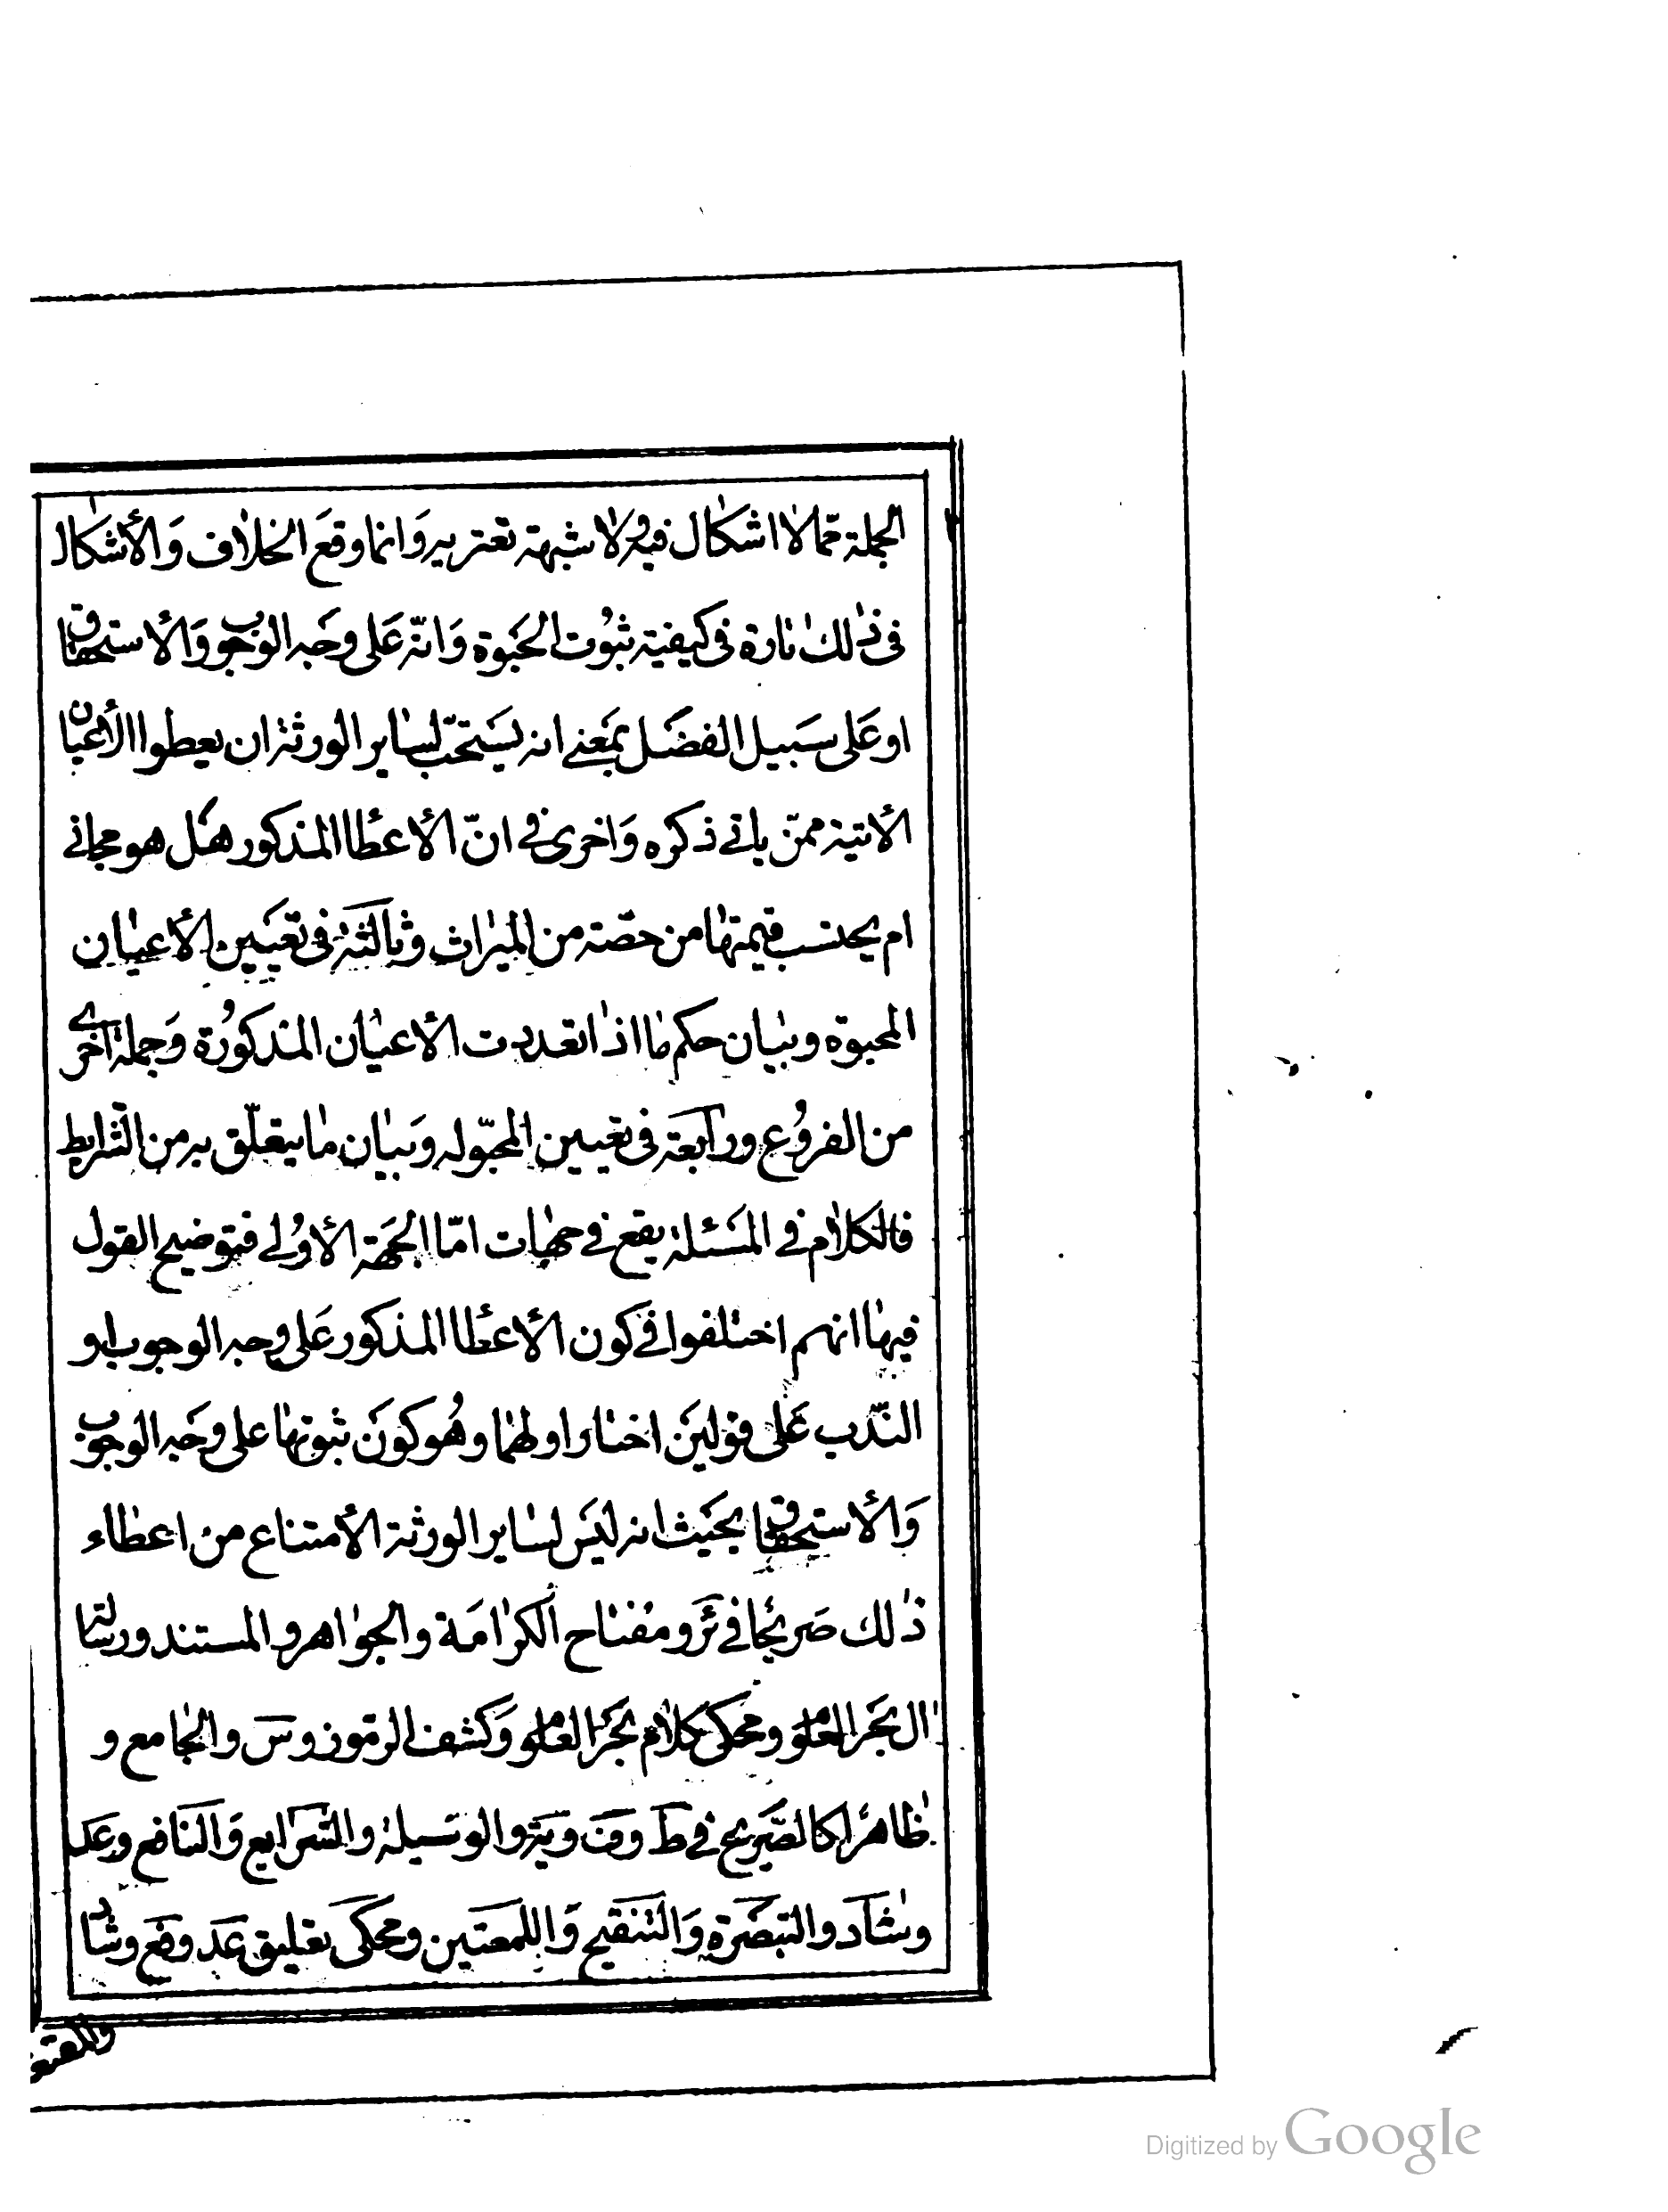 الجملة ممّا لا اشكال فيه ولا شبهة تعتريه وَانما وقعَ الخلاف وَالأشكال
في ذلك تارة في كيفية ثبوُت الحَبوة وَانّه عَلى وجَه الوجوب وَالأستحقاق
او عَلى سَبيل الفضَل بمَعنى انه يسَتحَبّ لساير الورثة ان يعطوا الأعيان
الأتية ممّن ياتي ذكره وَاخرى في انّ الأعطا المذكور هَل هو مجاني
ام يحتسب قيمتها من حصّته من الميراث وثالثة في تعَيين الأعيان
المحبوة وبيان حكم ما اذا تعددت الأعيان المذكورُة وَجملة اخرى
من الفروُع ورابعَة في تعيين المحبوّ له وبَيان ما يتعلّق به من الشرايط
فالكلام في المسَئلة يقع في جهات امّا الجهَة الأوُلى فتوضيح القول
فيها انهم اختلفوا في كون الأعطا المذكور عَلى وجه الوجوب او
النّدب عَلى قولينَ اختار اولهما وهُو كونَ ثبوتها على وجَه الوجوب
وَالأستحقاق بحَيث انه ليسَ لساير الورثة الأمتناع من اعطاء
ذلك صَريحًا في ئر ومفتاح الكرامَة والجواهر والمستند ورسالتا
ال بحَر العلوم ومحكى كلام بحَر العلوم وَكشف الرموز وس والجامع و
ظاهرًا كالصّريح في ط وف ويَر والوسَيلة والشرَايع وَالنافع وعَد
وشاد والتبصَرة وَالتنقيح وَاللمعَتين ومحكَى تعليق عَد وفع وشاد
والمفتو
Digitized by Google